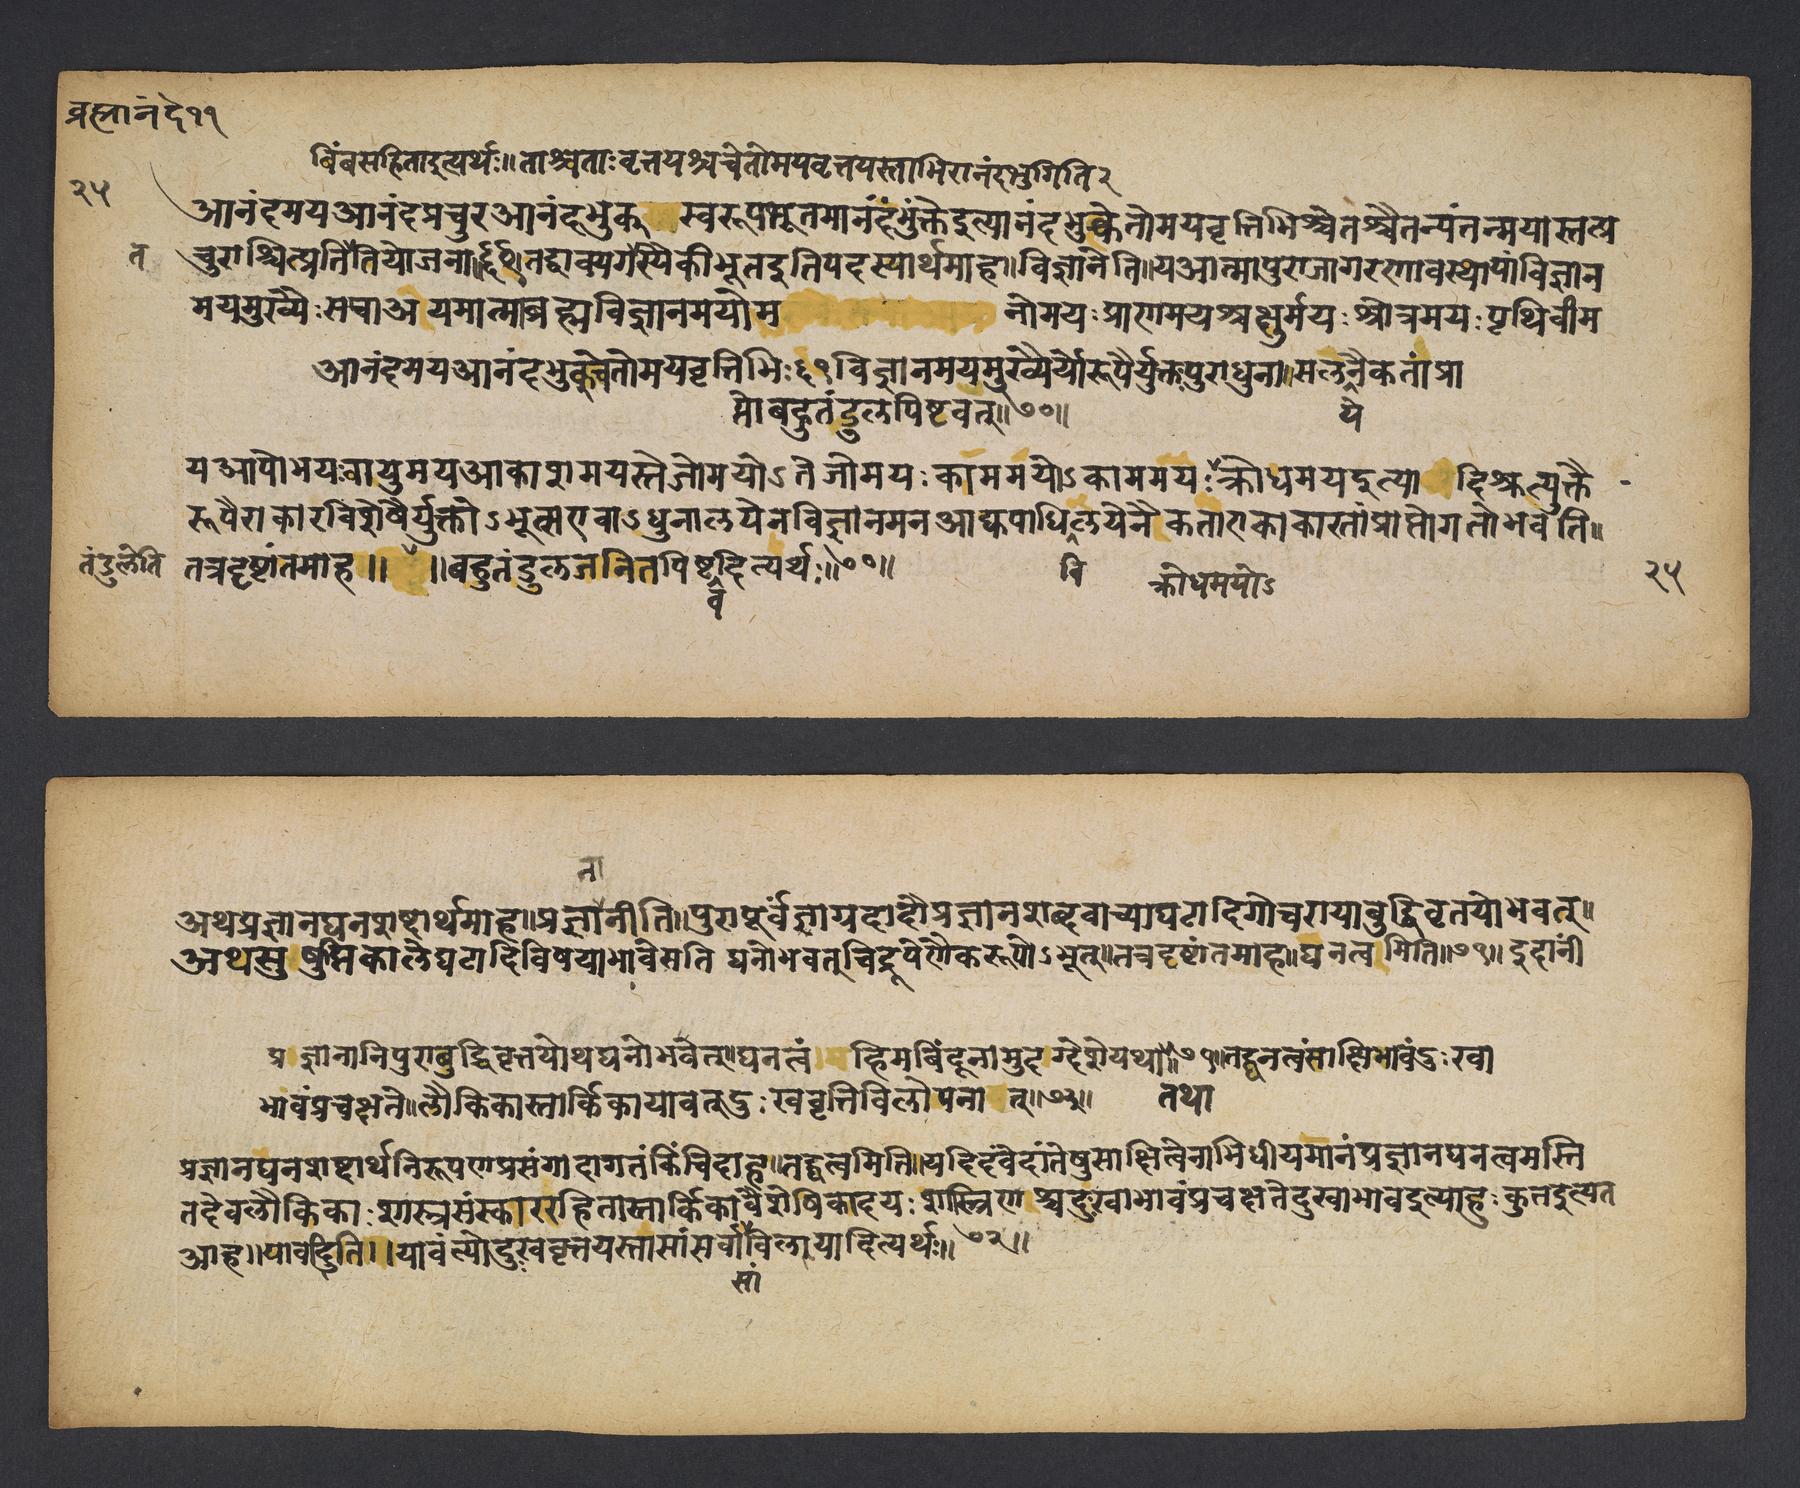 ब्रह्मानंदे११
बिंबसहितादुत्यर्थः॥ताश्चताःवृत्तयश्चचेतोमयवृत्तयस्ताभिरानंदभुगिति२
२५
आनंदमयआनंदप्रचुरआनंदभुक् स्वरूपभूतमानंदंभुंक्तेइत्यानंदभुक्चेतोमयवृत्तिभिश्चेतश्चैतन्यंतन्मयास्तत्प्र
त
चुराश्चित्प्रतितियोजना॥तद्वाक्यगस्यैकीभूतइतिपदस्यार्थमाह॥विज्ञानेति॥यआत्मापुराजागरणावस्थायांविज्ञान
मयमुख्यैःसवाअयमात्माब्रह्मविज्ञानमयोम नोमयःप्राणमयश्चक्षुर्मयःश्रोत्रमयःपृथिवीम
आनंदमयआनंदभुक्चेतोमयवृत्तिभिः६९विज्ञानमयमुख्यैर्योरूपैर्युक्तःपुराधुना॥सलनैकतांप्रा
ये
प्तोबहुतंडुलपिष्टवत्॥७०॥
यआपोमयःवायुमयआकाशमयस्तेजोमयोऽतेजोमयःकाममयोऽकाममयःक्रोधमयइत्या दिश्रुत्युक्तै
रूपैराकारविशेषैर्युक्तोऽभूत्सएवाऽधुनालयेनविज्ञानमनआद्युपाधिलयेनैकताएकाकारतांप्राप्तोगतोभवति॥
तंडुलेति
तत्रदृष्टांतमाह॥ ॥बहुतंडुलजनितपिष्टदित्यर्थः॥७०॥
व
वि
क्रोधमयोऽ
२५
ना
अथप्रज्ञानघनशब्दार्थमाह॥प्रज्ञानीति॥पुरापूर्वंजाग्रदादौप्रज्ञानशब्दवाच्याघटादिगोचरायाबुद्धिवृतयोभवत्॥
अथसुषुप्तिकालेघटादिविषयाभावेसति घनोभवत्चिद्रूपेणैकरूपोऽभूत्॥तत्रदृष्टांतमाह॥घनत्वमिति॥७१॥इदानीं
प्रज्ञानानिपुराबुद्धिवृत्तयोथघनोभवेत्॥घनत्वं हिमबिंदूनामुदग्देशेयथा॥७१॥तद्घनत्वंसाक्षिभावंदुःखा
भावंप्रचक्षते॥लौकिकास्तार्किकायावत्दुःखवृत्तिविलोपनात्॥७२॥
तथा
प्रज्ञानघनशब्दार्थनिरूपणप्रसंगादागतंकिंचिदाह॥तद्घत्वमिति॥यदिदंवेदांतेषुसाक्षित्वेनाभिधीयमानंप्रज्ञानघनत्वमस्ति
तदेवलौकिकाःशास्त्रसंस्काररहितास्तार्किकावैशेषिकादयःशास्त्रिणश्चदुःखाभावंप्रचक्षतेदुखाभावइत्याहुःकुतइत्यत
आह॥यावदिति॥यावंत्योदुःखवृत्तयस्तासांसर्वाविलायादित्यर्थः॥७२॥
सां